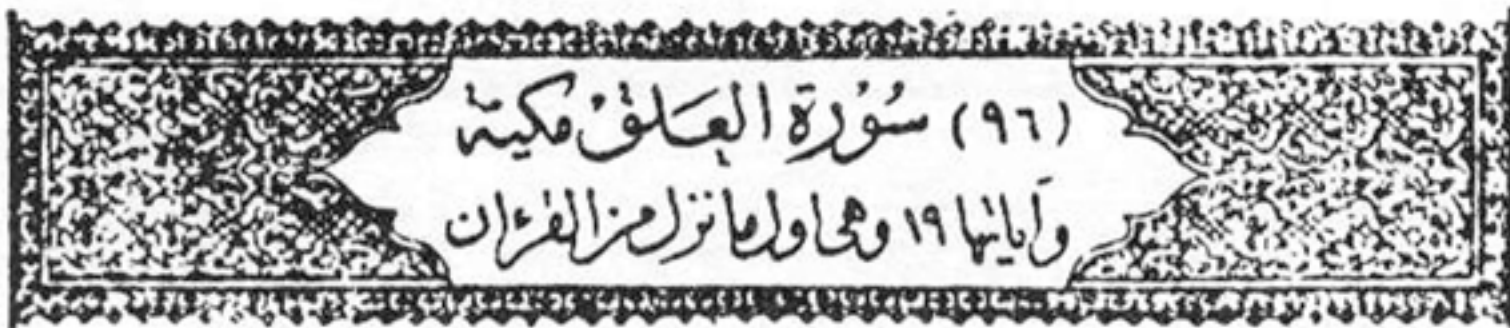 (٩٦) سُوْرَة العَلَق مكية
وَآياتها ١٩ وهى اول ما نزل من القرءان